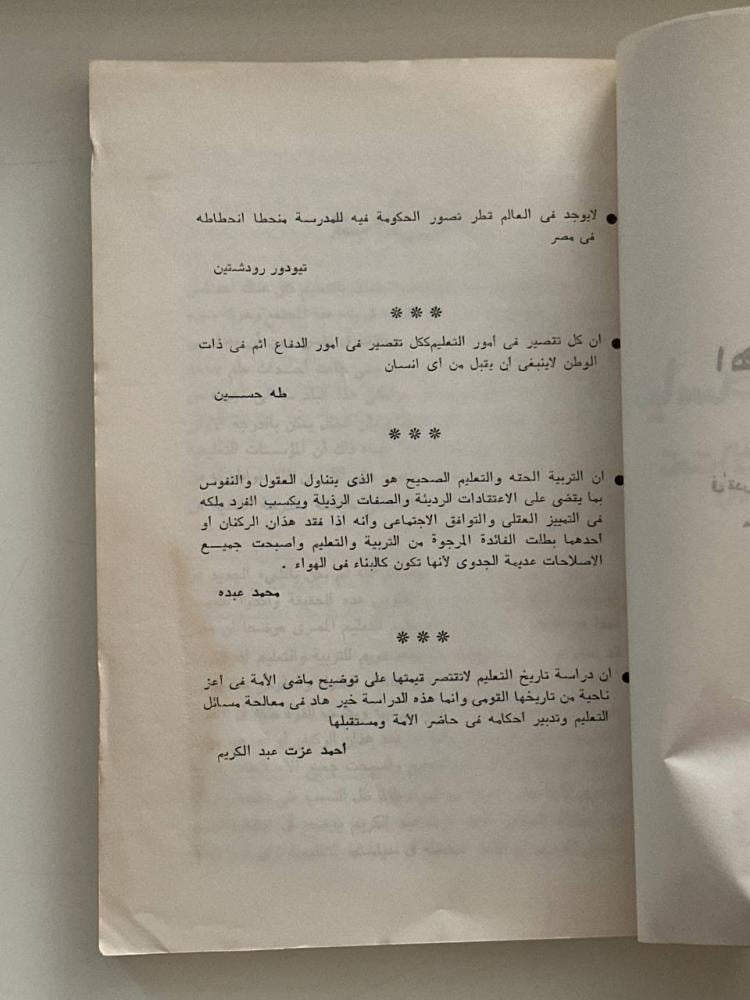 ● لايوجد فى العالم قطر تصور الحكومة فيه للمدرسة منحطا انحطاطه
فى مصر
تيودور رودشتين
❊ ❊ ❊
● ان كل تقصير فى أمور التعليمككل تقصير فى أمور الدفاع اثم فى ذات
الوطن لاينبغى أن يقبل من أى انسان
طه حســـين
❊ ❊ ❊
● ان التربية الحقه والتعليم الصحيح هو الذى يتناول العقول والنفوس
بما يقضى على الاعتقادات الرديئة والصفات الرذيلة ويكسب الفرد ملكه
فى التمييز العقلى والتوافق الاجتماعى وأنه اذا فقد هذان الركنان أو
أحدهما بطلت الفائدة المرجوة من التربية والتعليم واصبحت جميـــع
الاصلاحات عديمة الجدوى لأنها تكون كالبناء فى الهواء .
محمد عبده
❊ ❊ ❊
● ان دراسة تاريخ التعليم لاتقتصر قيمتها على توضيح ماضى الأمة فى أعز
ناحية من تاريخها القومى وانما هذه الدراسة خير هاد فى معالجة مسائل
التعليم وتدبير أحكامه فى حاضر الأمة ومستقبلها
أحمد عزت عبد الكريم